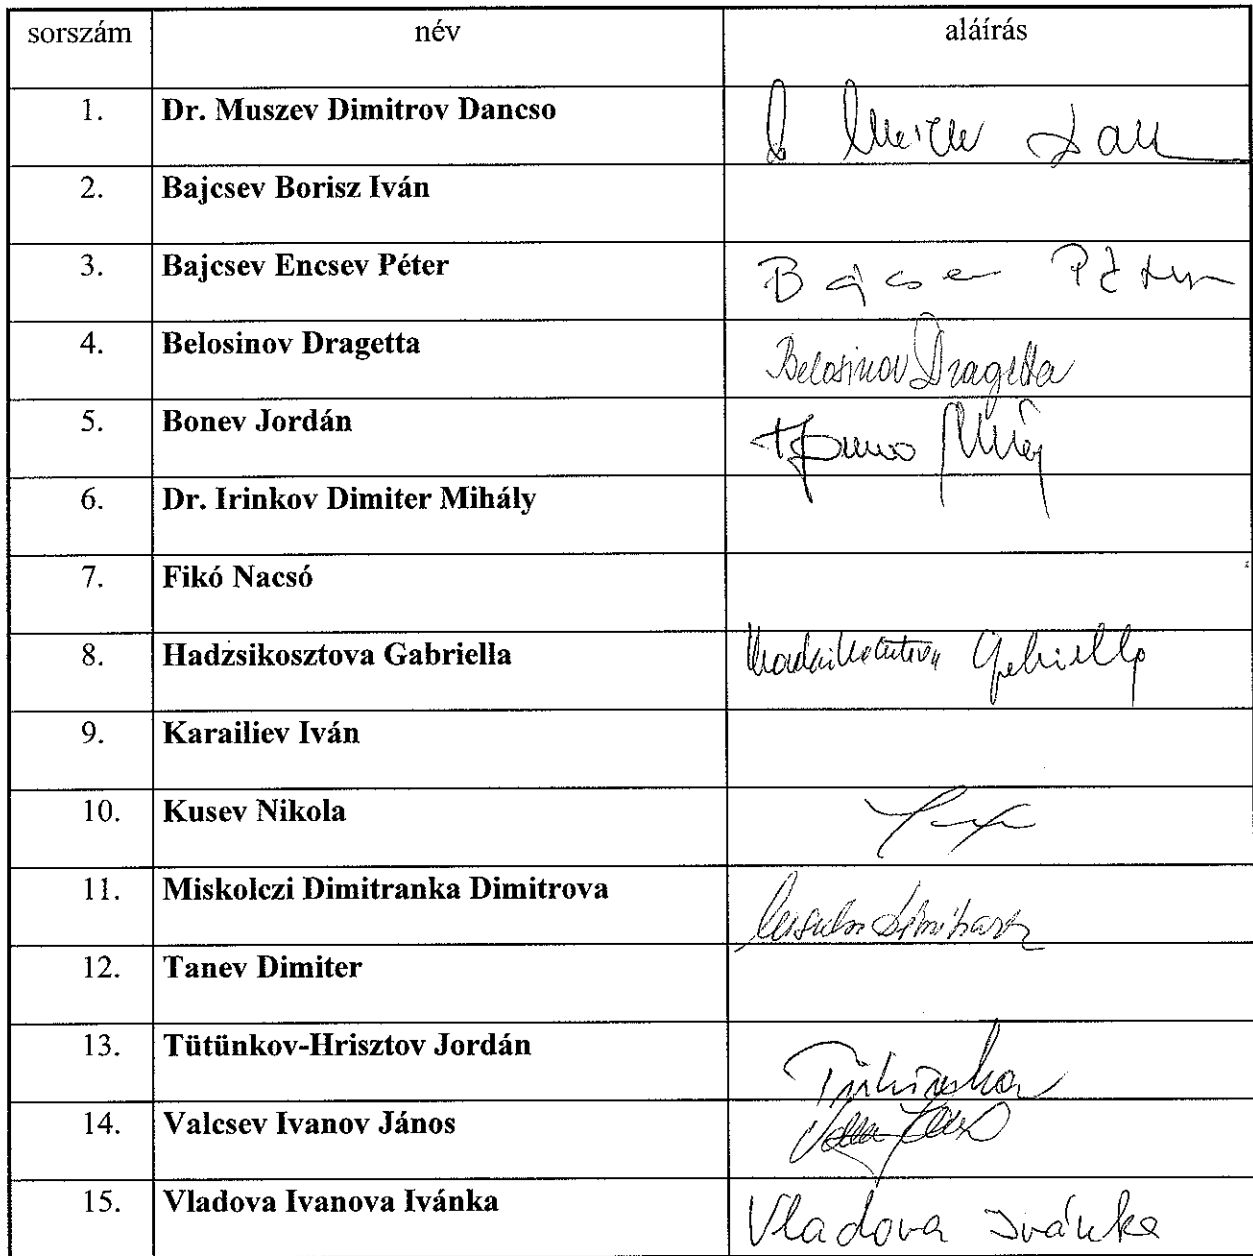 sorszám név aláírás
1. Dr. Muszev Dimitrov Dancso
2. Bajcsev Borisz Iván
3. Bajcsev Encsev Péter Bajcsev Péter
4. Belosinov Dragetta Belosinov Dragetta
5. Bonev Jordán
6. Dr. Irinkov Dimiter Mihály
7. Fikó Nacsó
8. Hadzsikosztova Gabriella Hadzsikosztova Gabriella
9. Karailiev Iván
10. Kusev Nikola
11. Miskolczi Dimitranka Dimitrova
12. Tanev Dimiter
13. Tütünkov-Hrisztov Jordán
14. Valcsev Ivanov János
15. Vladova Ivanova Ivánka Vladova Ivánka